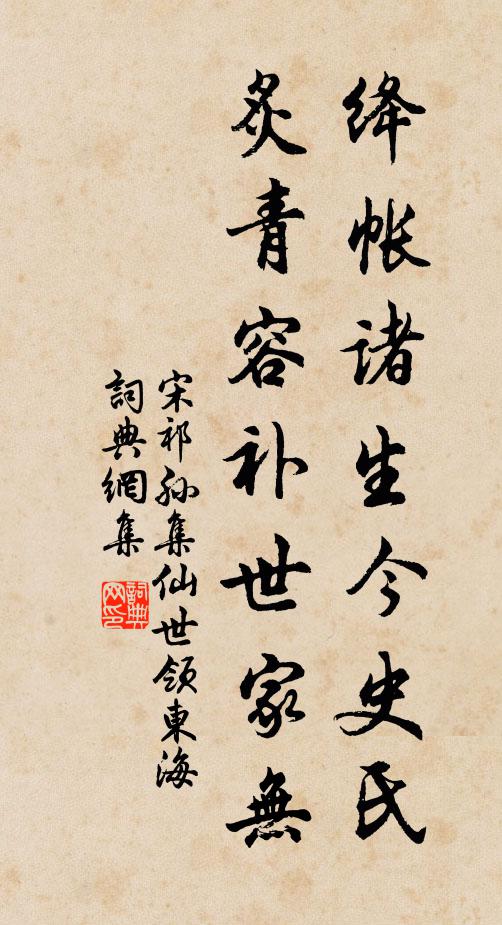 绛帐诸生今史氏
炙青容补世家無
宋祁孙集仙世領東海
詞典網集
詞典网印